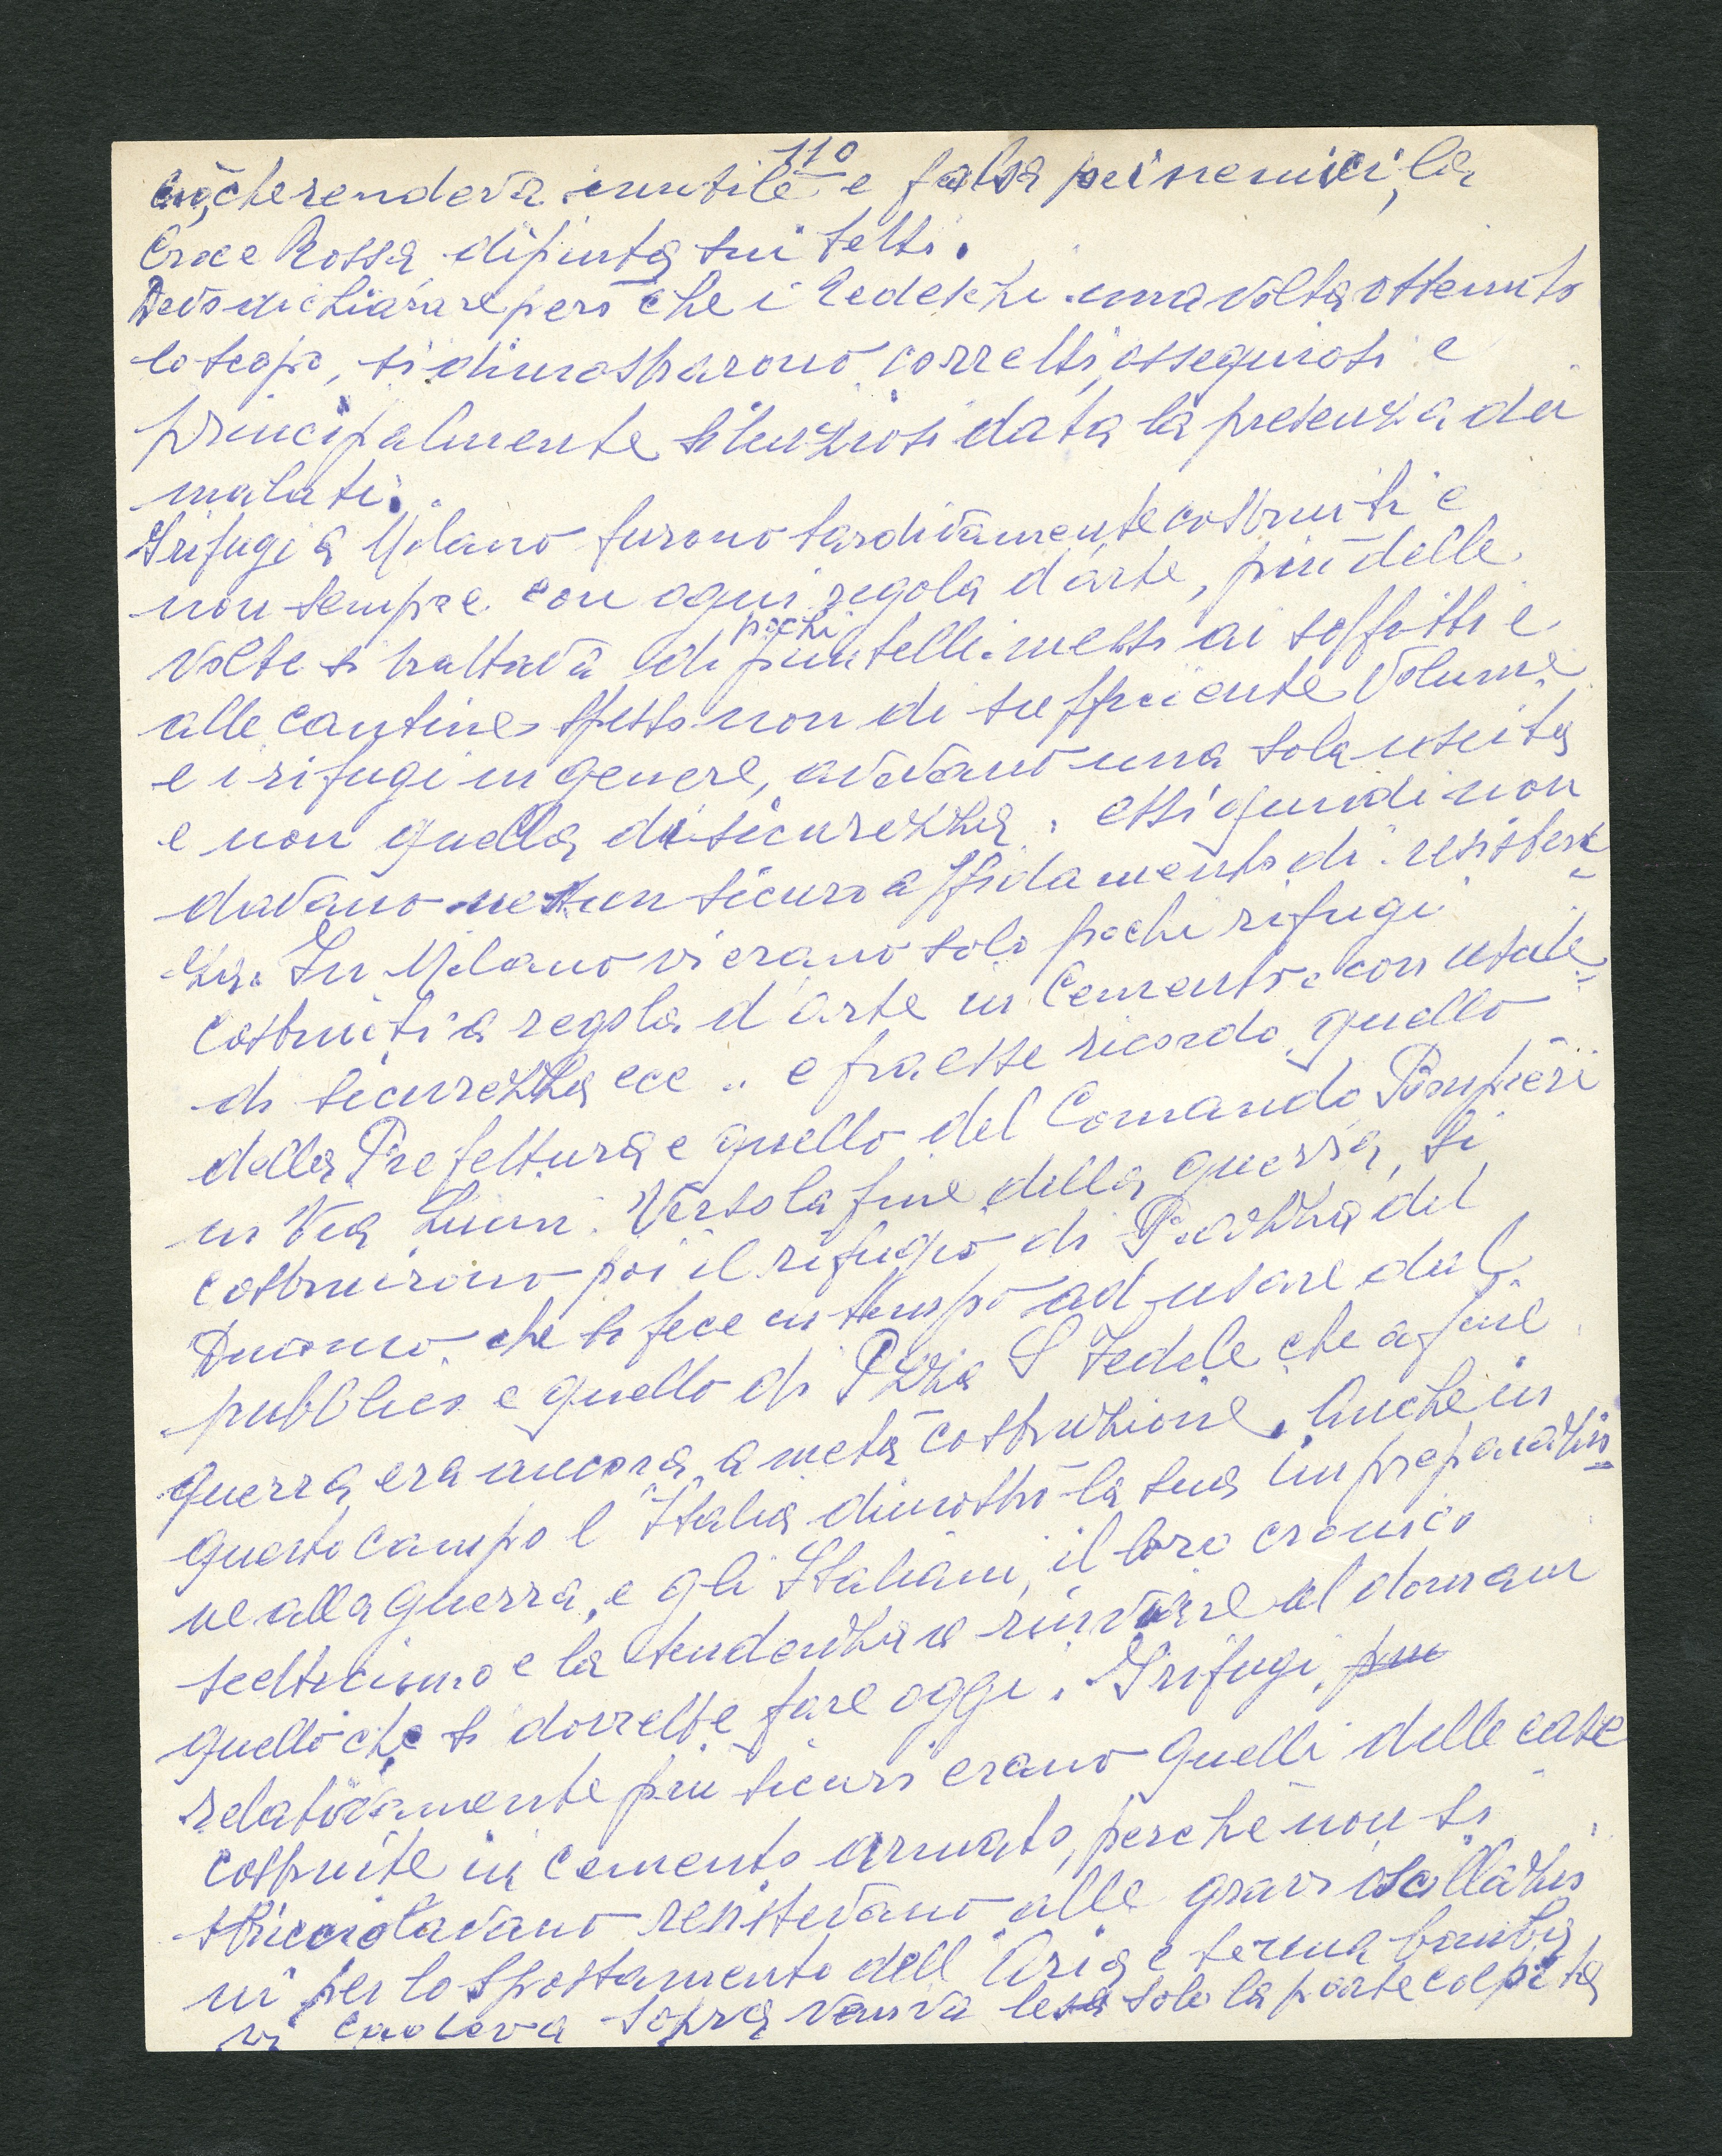 110
ciò, che rendeva inutile e falsa pei nemici, la
Croce Rossa dipinta sui tetti.
Devo dichiarare però che i Tedeschi una volta ottenuto
lo scopo, si dimostrarono corretti, ossequiosi e
principalmente silenziosi data la presenza dei
malati.
I rifugi a Milano furono tardivamente costruiti e
non sempre con ogni regola d'arte, più delle
pochi
volte si trattava di puntelli messi ai soffitti e
alle cantine spesso non di sufficiente volume
e i rifugi in genere, avevano una sola uscita
e non quella di sicurezza. essi quindi non
davano nessun sicuro affidamento di resisten-
za. In Milano vi erano solo pochi rifugi
costruiti a regola d'arte in Cemento e con uscite
di sicurezza ecc .. e fra esse ricordo quello
della Prefettura e quello del Comando Pompieri
in Via Luini. Verso la fine della guerra, si
costruirono poi il rifugio di Piazza del
Duomo che si fece in tempo ad usare dal
pubblico e quello di Pzza S Fedele che a fine
guerra era ancora a metà costruzione. Anche in
questo campo l'Italia dimostrò la sua impreparazio-
ne alla guerra, e gli Italiani, il loro cronico
scetticismo e la tendenza a rinviare al domani
quello che si dovrebbe fare oggi. I rifugi, più
relativamente più sicuri erano quelli delle case
costruite in cemento armato, perchè non si
sbricciolavano resistevano alle gravi oscillazio
ni per lo spostamento dell'Aria e se una bomba
vi cadeva sopra veniva lesa solo la parte colpita